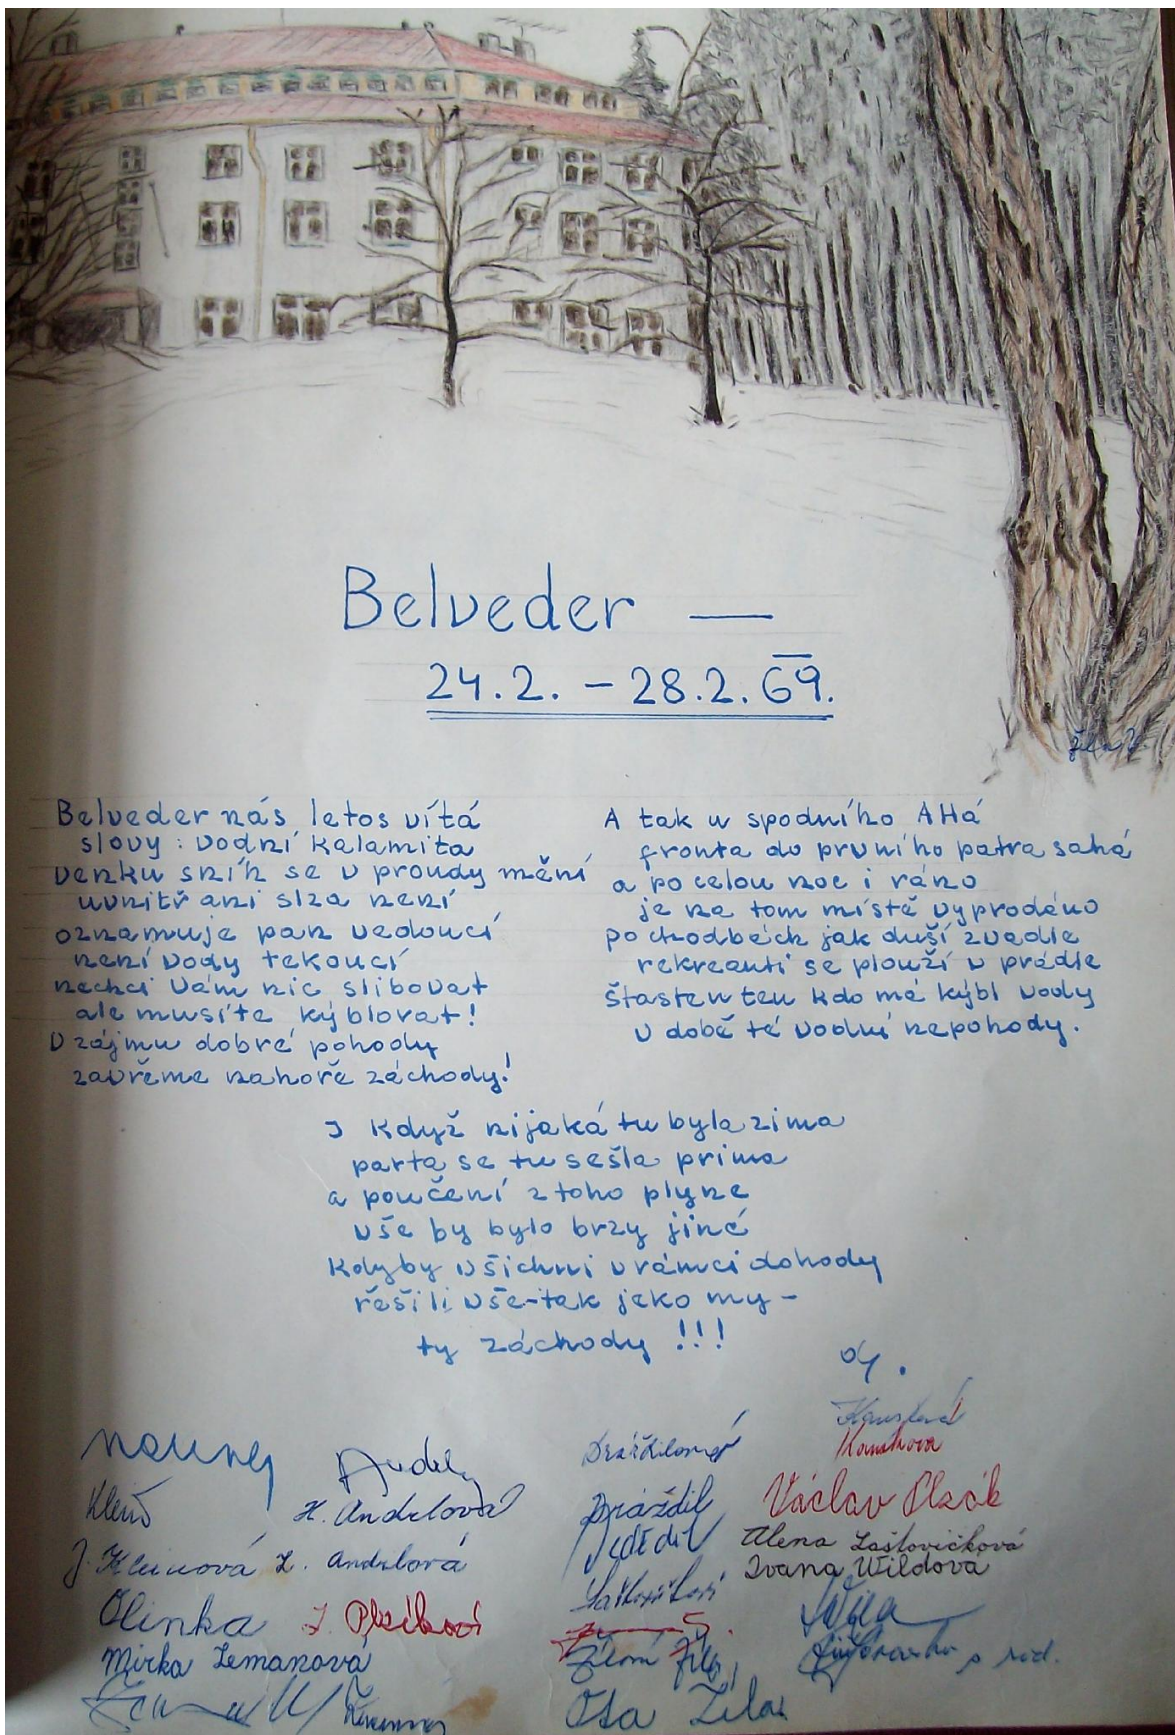 Belveder —
24.2. – 28.2. 69.
Belveder nás letos vítá
slovy : vodní kalamita
venku sníh se v proudy mění
uvnitř ani slza není
oznamuje pan vedoucí
není vody tekoucí
nechci vám nic slibovat
ale musíte kýblovat!
V zájmu dobré pohody
zavřeme nahoře záchody!
A tak u spodního AHá
fronta do prvního patra sahá
a po celou noc i ráno
je na tom místě vyprodáno
po chodbách jak duší zvadle
rekreanti se plouží v prádle
šťasten ten kdo má kýbl vody
v době té vodní nepohody.
I když nijaká tu byla zima
parta se tu sešla prima
a poučení z toho plyne
vše by bylo brzy jiné
Kdyby všichni v rámci dohody
řešili vše-tak jako my –
ty záchody !!!
H. Andelová
J. Kleinová
L. Andelová
Olinka
Mirka Zemanová
Dráždil
Jedědil
Ota Žila
Václav Plzák
Alena Lašlovičková
Ivana Wildová
s rod.